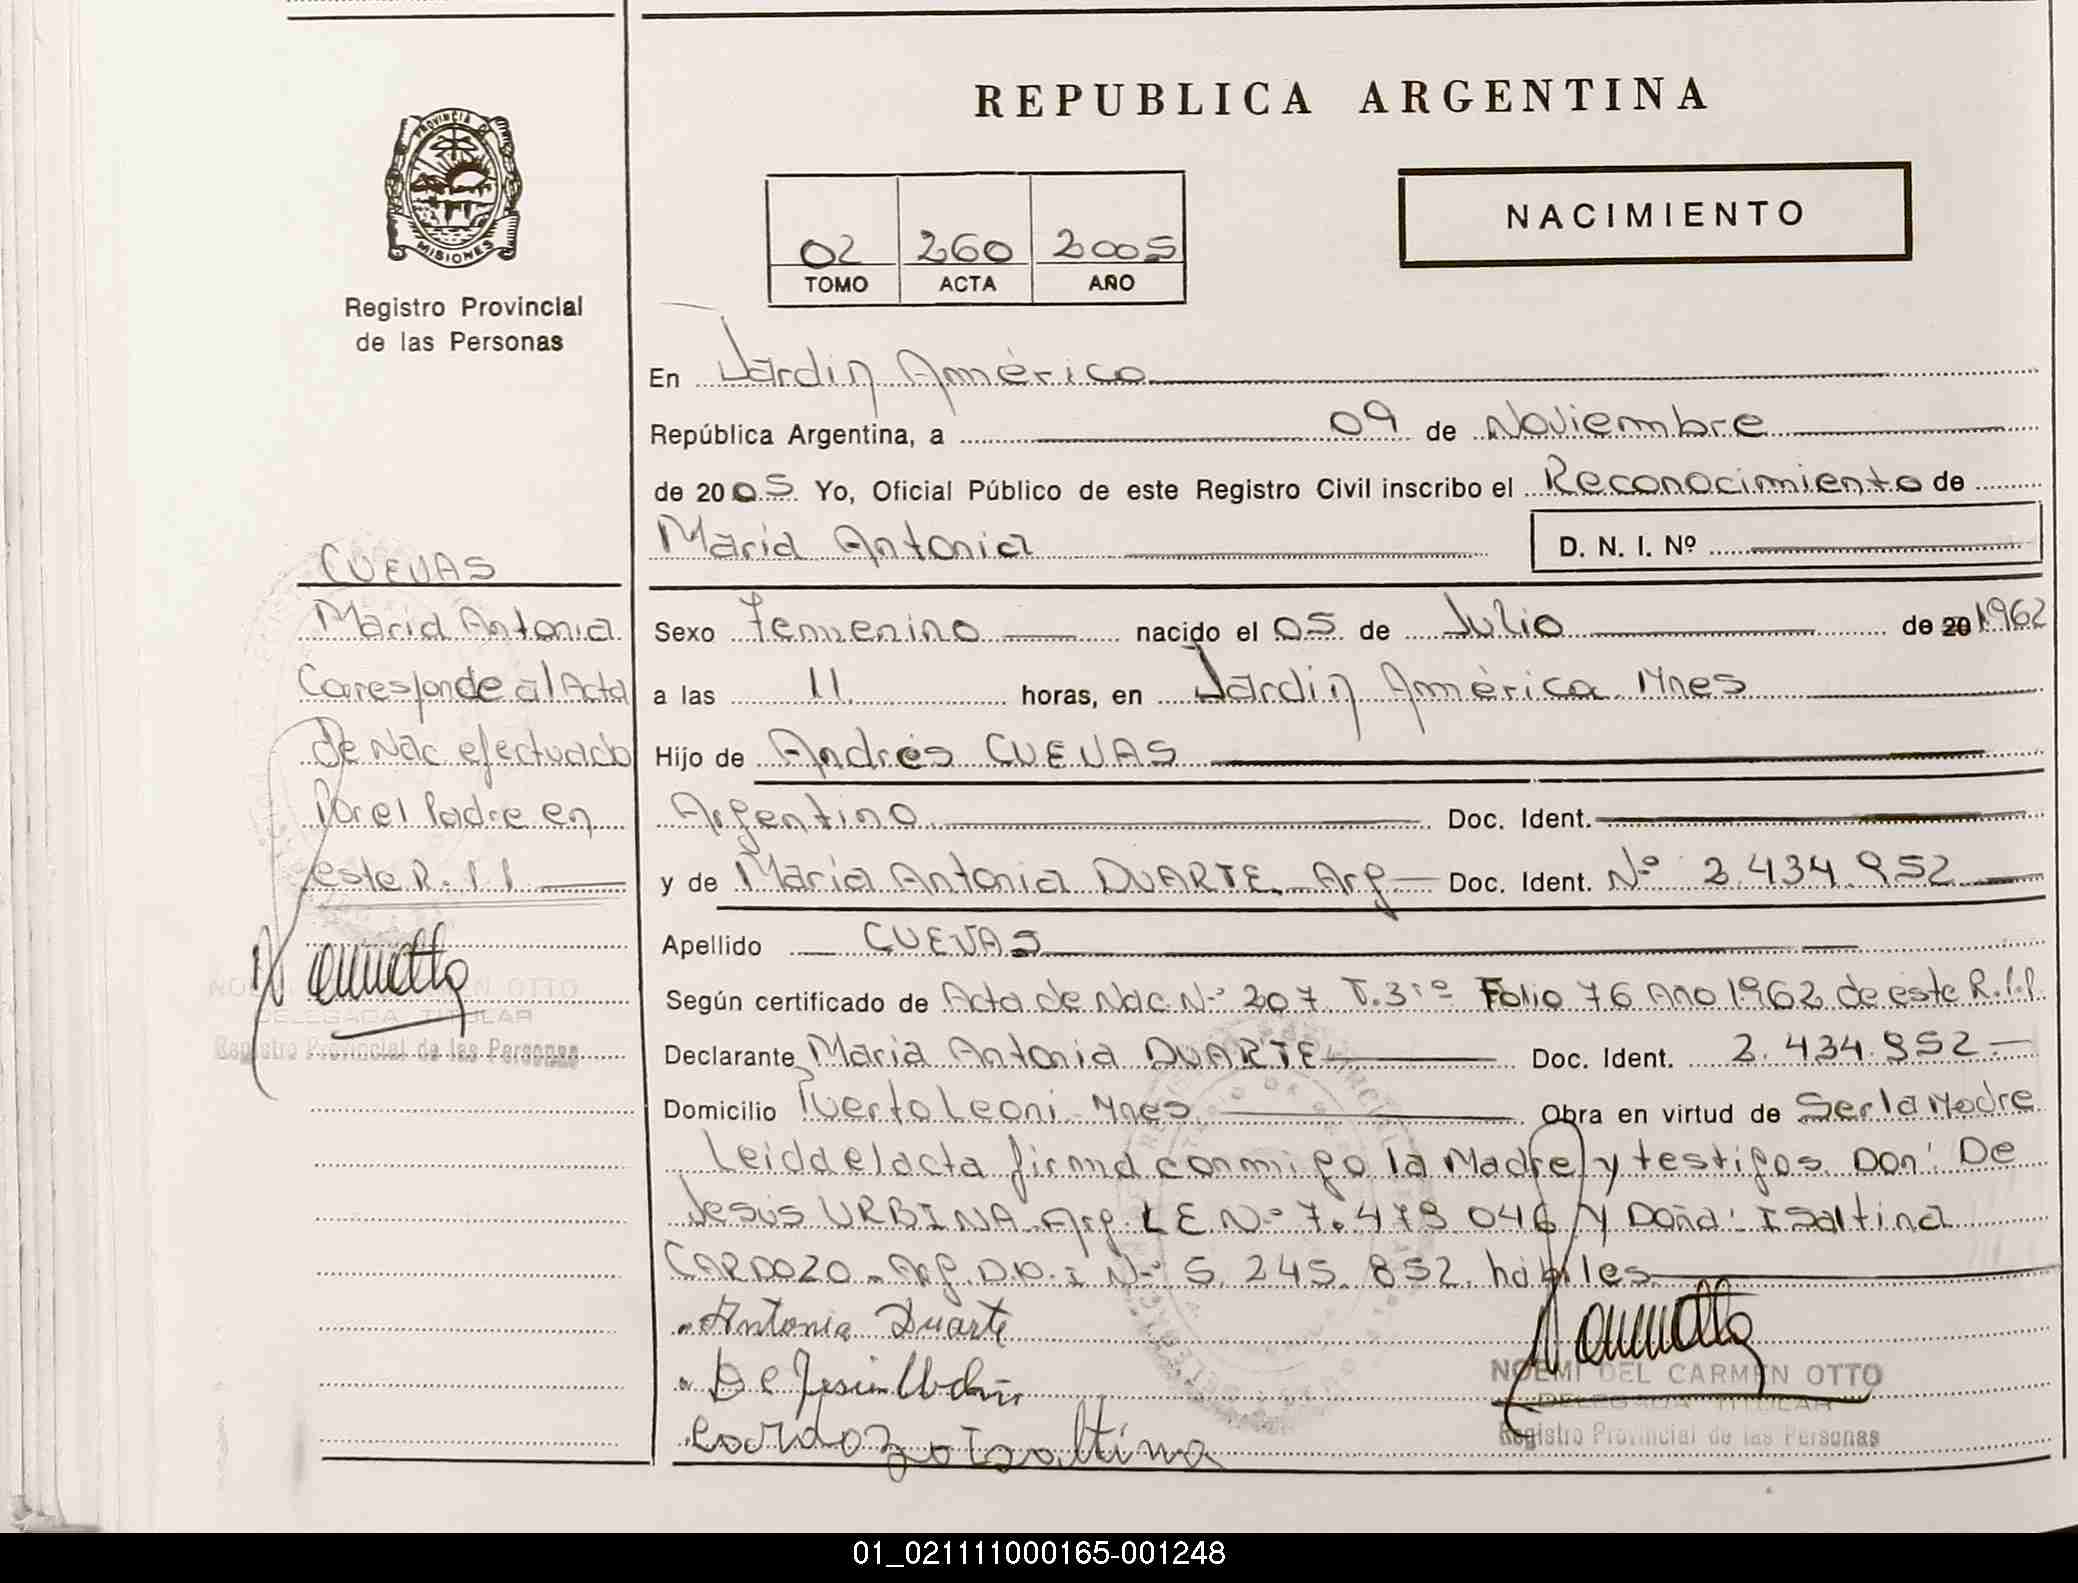 REPUBLICA ARGENTINA
PROVINCIA DE
MISIONES
Registro Provincial
de las Personas
NACIMIENTO
02 260 2005
TOMO ACTA AÑO
En Jardin América
República Argentina, a 09 de Noviembre
de 2005 Yo, Oficial Público de este Registro Civil inscribo el Reconocimiento de
Maria Antonia D. N. I. Nº
Sexo Femenino nacido el 05 de Julio de 20 1962
a las 11 horas, en Jardin América Mnes
Hijo de Andrés CUEVAS
Argentino Doc. Ident.
y de Maria Antonia DUARTE. Arg Doc. Ident. Nº 2.434.952
Apellido CUEVAS
Según certificado de Acta de Nac. Nº 207 T. 3º Folio 76 Año 1962 de este R.P.P.
Declarante Maria Antonia DUARTE Doc. Ident. 2.434.952
Domicilio Puerto Leoni Mnes Obra en virtud de Ser la Madre
Leida el acta firma conmigo la Madre y testigos Don: De
Jesús URBINA Arg. L E Nº 7.479.046 y Doña: Isaltina
CARDOZO Arg. D.N.I Nº 5.245.852 hábiles
Antonia Duarte
De Jesús
Cardozo Isaltina
NOEMI DEL CARMEN OTTO
DELEGADA TITULAR
Registro Provincial de las Personas
CUEVAS
Maria Antonia
Corresponde al Acta
de Nac efectuado
Por el Padre en
este R.P.P
CARMEN OTTO
DELEGADA TITULAR
Registro Provincial de las Personas
01_021111000165-001248